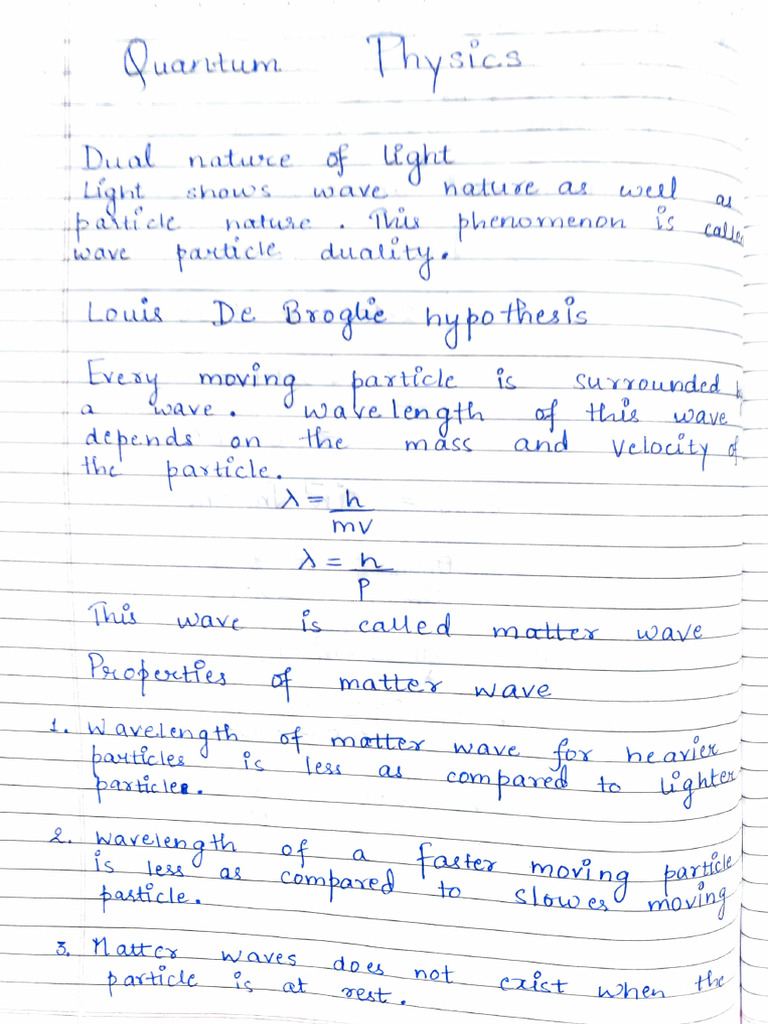 Quantum Physics
Dual nature of light
Light shows wave nature as well as
particle nature. This phenomenon is called
wave particle duality.
Louis De Broglie hypothesis
Every moving particle is surrounded b
a wave. wavelength of this wave
depends on the mass and velocity of
the particle.
λ = h
mv
λ = h
p
This wave is called matter wave
Properties of matter wave
1. Wavelength of matter wave for heavier
particles is less as compared to lighter
particles.
2. Wavelength of a faster moving particle
is less as compared to slower moving
particle.
3. Matter waves does not exist when the
particle is at rest.